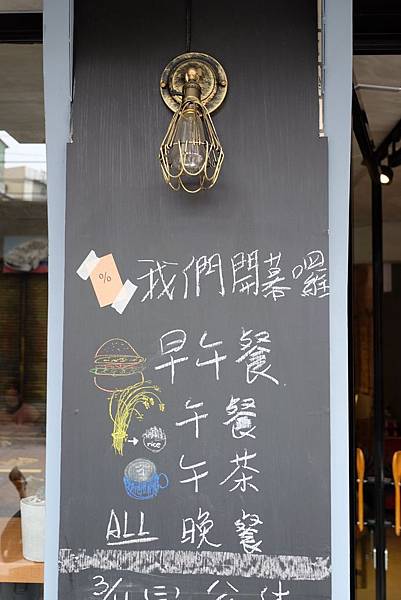 % 我們開幕囉
早午餐
午餐
rice
午茶
ALL 晚餐
3/11 (三) 公休